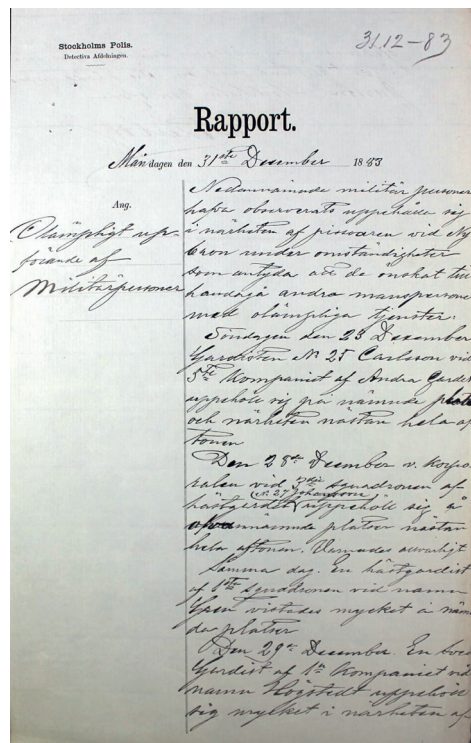 Stockholms Polis.
Detectiva Afdelningen.
31.12-83
Rapport.
Måndagen den 31ste December 1883
Ang.
Olämpligt upp-
förande af
Militärpersoner
Nedannämnde militär personer
hafva observerats uppehålla sig
i närheten af pissoaren vid Ny
bron under omständigheter
som antyda att de önskat till
handagå andra manspersoner
med olämpliga tjenster.
Söndagen den 23 December
Gardisten N. 25 Carlsson vid
5te Kompaniet af Andra Gardet
uppehöll sig på nämnde plats
och närheten nästan hela af
tonen
Den 28de December v. Korpo
ralen vid squadronen af
(N. 27 Johansson)
hästgardet uppehöll sig å
ofvannämnde platser nästan
hela aftonen. Varnades allvarligt
Samma dag. En hästgardist
af 1sta squadronen vid namn
vistades mycket i näm
da platser
Den 29de December. En Svea
Gardist af 1a Kompaniet vid
namn Högstedt uppehöll
sig mycket i närheten af